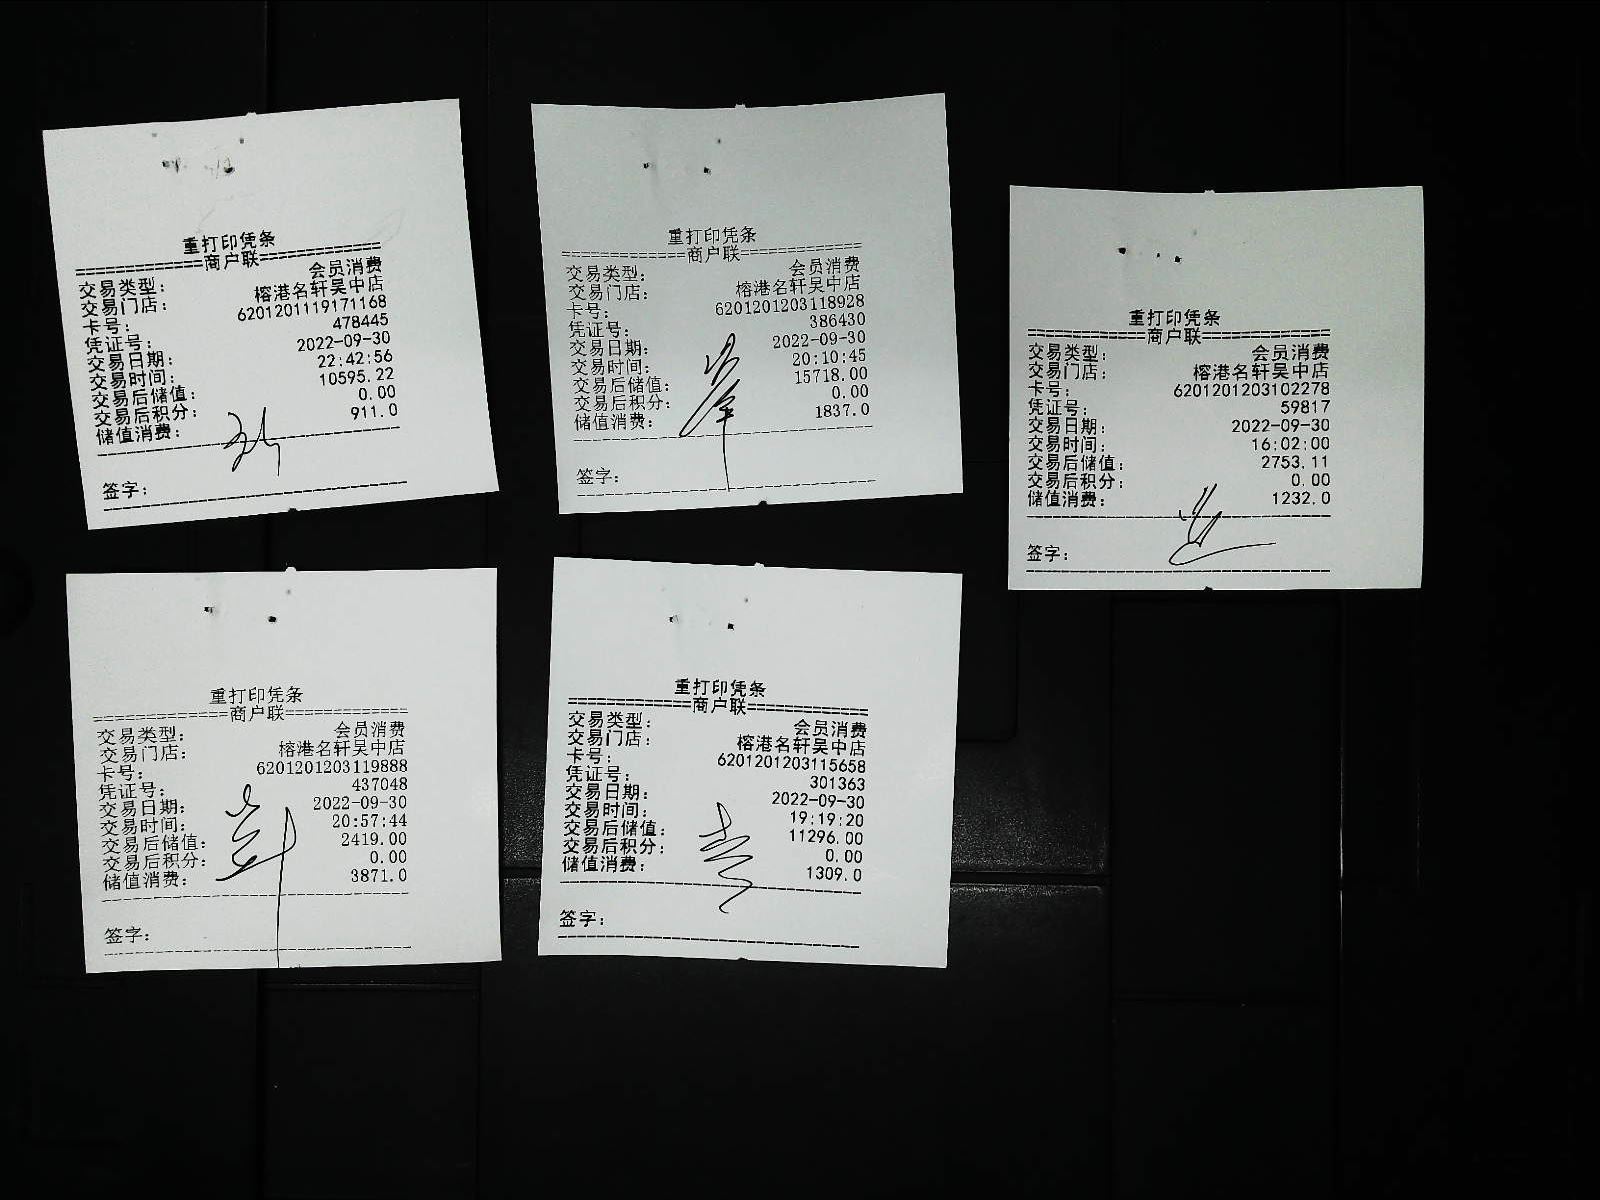 重打印凭条
=============商户联=============
交易类型: 会员消费
交易门店: 榕港名轩吴中店
卡号: 6201201119171168
凭证号: 478445
交易日期: 2022-09-30
交易时间: 22:42:56
交易后储值: 10595.22
交易后积分: 0.00
储值消费: 911.0
签字:
重打印凭条
=============商户联=============
交易类型: 会员消费
交易门店: 榕港名轩吴中店
卡号: 6201201203118928
凭证号: 386430
交易日期: 2022-09-30
交易时间: 20:10:45
交易后储值: 15718.00
交易后积分: 0.00
储值消费: 1837.0
签字:
重打印凭条
=============商户联=============
交易类型: 会员消费
交易门店: 榕港名轩吴中店
卡号: 6201201203102278
凭证号: 59817
交易日期: 2022-09-30
交易时间: 16:02:00
交易后储值: 2753.11
交易后积分: 0.00
储值消费: 1232.0
签字:
重打印凭条
=============商户联=============
交易类型: 会员消费
交易门店: 榕港名轩吴中店
卡号: 6201201203119888
凭证号: 437048
交易日期: 2022-09-30
交易时间: 20:57:44
交易后储值: 2419.00
交易后积分: 0.00
储值消费: 3871.0
签字:
重打印凭条
=============商户联=============
交易类型: 会员消费
交易门店: 榕港名轩吴中店
卡号: 6201201203115658
凭证号: 301363
交易日期: 2022-09-30
交易时间: 19:19:20
交易后储值: 11296.00
交易后积分: 0.00
储值消费: 1309.0
签字: